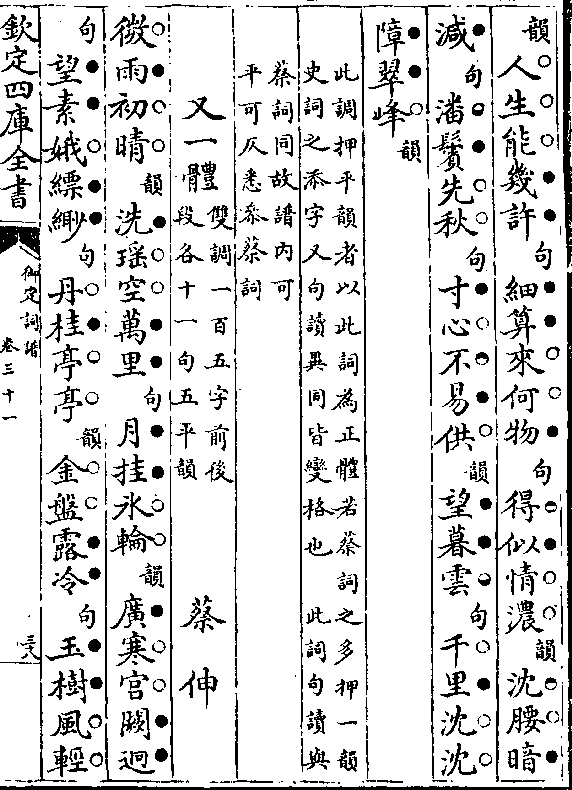 韻人生能幾許句細算來何物句得似情濃韻沈腰暗
減句潘鬢先秋句寸心不易供韻望暮雲句千里沈沈
障翠峰韻
此調押平韻者以此詞為正體若蔡詞之多押一韻
史詞之添字又句讀異同皆變格也 此詞句讀與
蔡詞同故譜内可
平可仄悉叅蔡詞
又一體雙調一百五字前後
段各十一句五平韻 蔡伸
微雨初晴韻洗瑶空萬里句月挂氷輪韻廣寒宫闕迥
句望素娥縹緲句丹桂亭亭韻金盤露冷句玉樹風輕
欽定四庫全書
御定詞譜
卷三十一